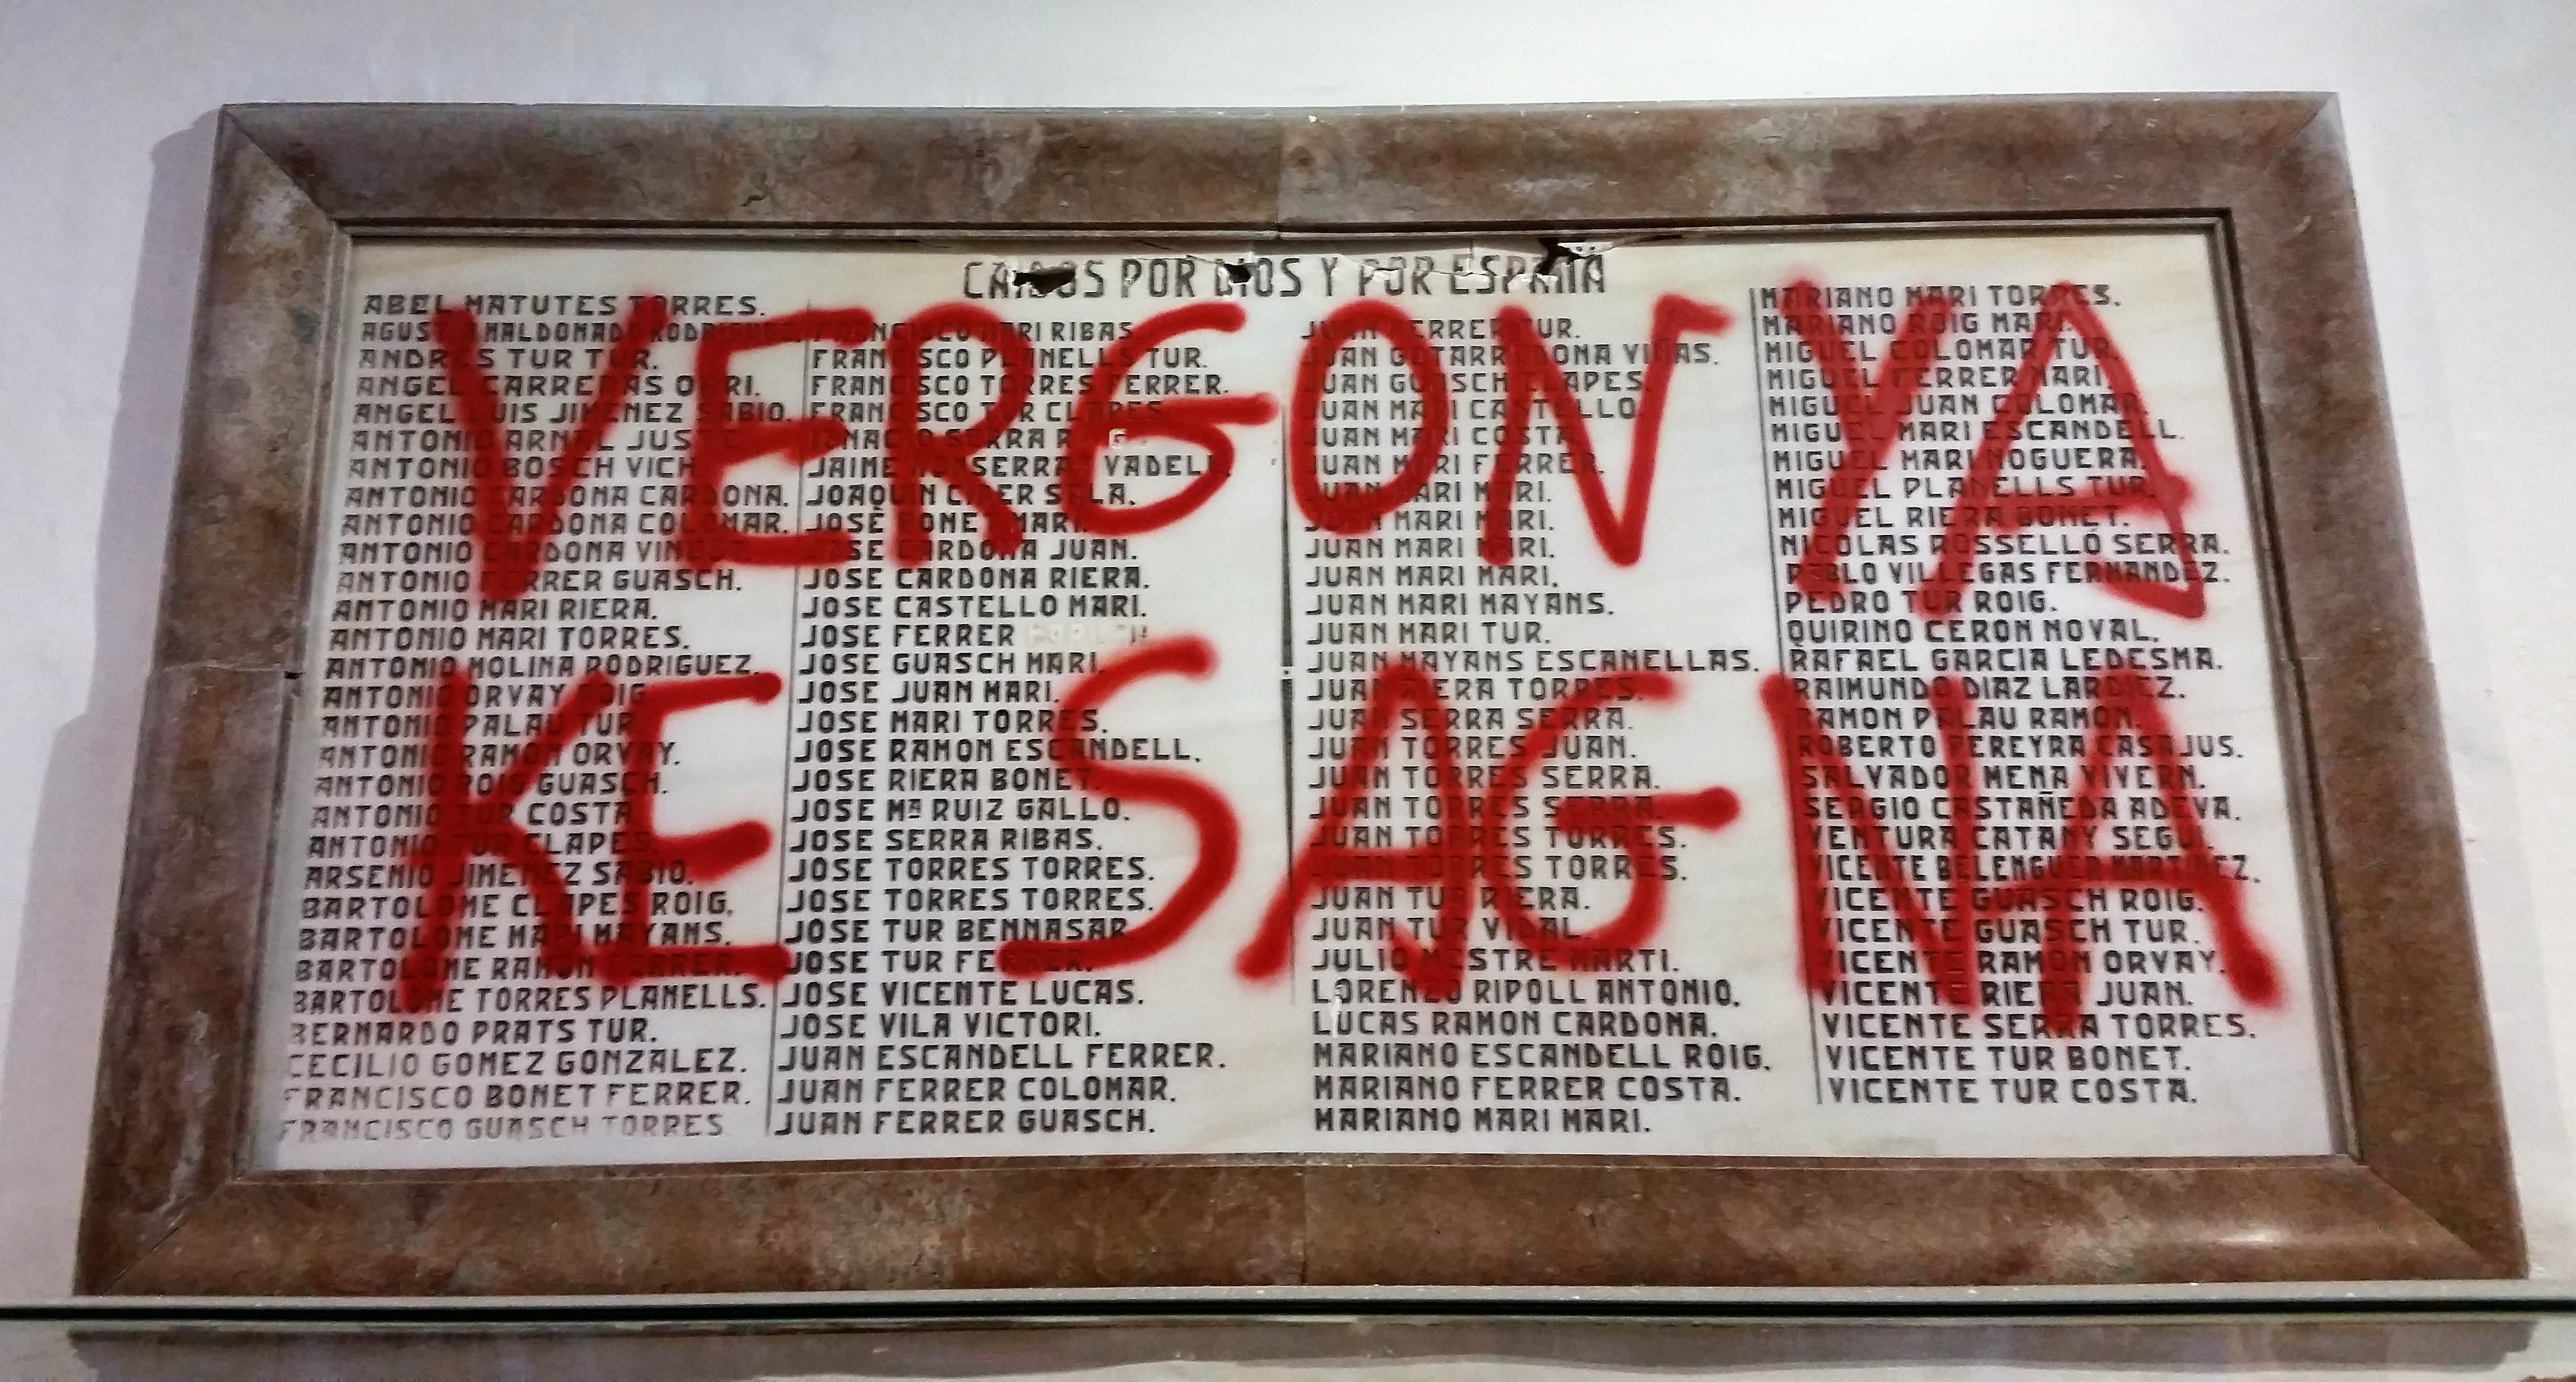 CAIDOS POR DIOS Y POR ESPAÑA
ABEL MATUTES TORRES.
AGUSTIN MALDONADO RODRIGUEZ.
ANDRES TUR TUR.
ANGEL CARRERAS OLARI.
ANGEL LUIS JIMENEZ SABIO.
ANTONIO ARNAL JUSTE
ANTONIO BOSCH VICH
ANTONIO CARDONA CARDONA.
ANTONIO CARDONA COLOMAR.
ANTONIO CARDONA
ANTONIO FERRER GUASCH.
ANTONIO MARI RIERA.
ANTONIO MARI TORRES.
ANTONIO MOLINA RODRIGUEZ.
ANTONIO ORVAY ROIG
ANTONIO PALAU TUR
ANTONIO RAMON ORVAY.
ANTONIO ROIG GUASCH.
ANTONIO TUR COSTA
ANTONIO TUR CLAPES.
ARSENIO JIMENEZ SABIO.
BARTOLOME CLAPES ROIG.
BARTOLOME MARI MAYANS.
BARTOLOME RAMON FERRER.
BARTOLOME TORRES PLANELLS.
BERNARDO PRATS TUR.
CECILIO GOMEZ GONZALEZ.
FRANCISCO BONET FERRER.
FRANCISCO GUASCH TORRES
FRANCISCO MARI RIBAS
FRANCISCO PLANELLS TUR.
FRANCISCO TORRES FERRER.
FRANCISCO TUR CLAPES
IGNACIO SERRA
JAIME MONSERRAT VADELL.
JOAQUIN CIRER SALA.
JOSÉ BONET MARI
JOSE CARDONA JUAN.
JOSE CARDONA RIERA.
JOSE CASTELLO MARI.
JOSE FERRER
JOSE GUASCH MARI.
JOSE JUAN MARI.
JOSE MARI TORRES.
JOSE RAMON ESCANDELL.
JOSE RIERA BONET.
JOSE Mª RUIZ GALLO.
JOSE SERRA RIBAS.
JOSE TORRES TORRES.
JOSE TORRES TORRES.
JOSE TUR BENNASAR
JOSE TUR FERRER.
JOSE VICENTE LUCAS.
JOSE VILA VICTORI.
JUAN ESCANDELL FERRER.
JUAN FERRER COLOMAR.
JUAN FERRER GUASCH.
JUAN FERRER TUR.
JUAN GOTARREDONA VIÑAS.
JUAN GUASCH CLAPES
JUAN MARI CASTELLO
JUAN MARI COSTA
JUAN MARI FERRER.
JUAN MARI MARI.
JUAN MARI MARI.
JUAN MARI MARI.
JUAN MARI MARI.
JUAN MARI MAYANS.
JUAN MARI TUR.
JUAN MAYANS ESCANELLAS.
JUAN RIERA TORRES.
JUAN SERRA SERRA.
JUAN TORRES JUAN.
JUAN TORRES SERRA.
JUAN TORRES SERRA
JUAN TORRES TORRES.
JUAN TORRES TORRES.
JUAN TUR RIERA.
JUAN TUR VIDAL.
JULIO MESTRE MARTI.
LORENZO RIPOLL ANTONIO.
LUCAS RAMON CARDONA.
MARIANO ESCANDELL ROIG.
MARIANO FERRER COSTA.
MARIANO MARI MARI.
MARIANO MARI TORRES.
MARIANO ROIG MARI.
MIGUEL COLOMAR TUR.
MIGUEL FERRER MARI.
MIGUEL JUAN COLOMAR.
MIGUEL MARI ESCANDELL.
MIGUEL MARI NOGUERA.
MIGUEL PLANELLS TUR.
MIGUEL RIERA BONET.
NICOLAS ROSSELLÓ SERRA.
PABLO VILLEGAS FERNANDEZ.
PEDRO TUR ROIG.
QUIRINO CERON NOVAL.
RAFAEL GARCIA LEDESMA.
RAIMUNDO DIAZ LARDIEZ.
RAMON PALAU RAMON.
ROBERTO PEREYRA CASAJUS.
SALVADOR MENA VIVERN.
SERGIO CASTAÑEDA ADEVA.
VENTURA CATANY SEGUI.
VICENTE BELENGUER MARTINEZ.
VICENTE GUASCH ROIG.
VICENTE GUASCH TUR.
VICENTE RAMON ORVAY.
VICENTE RIERA JUAN.
VICENTE SERRA TORRES.
VICENTE TUR BONET.
VICENTE TUR COSTA.
VERGONYA
KE SAGNA